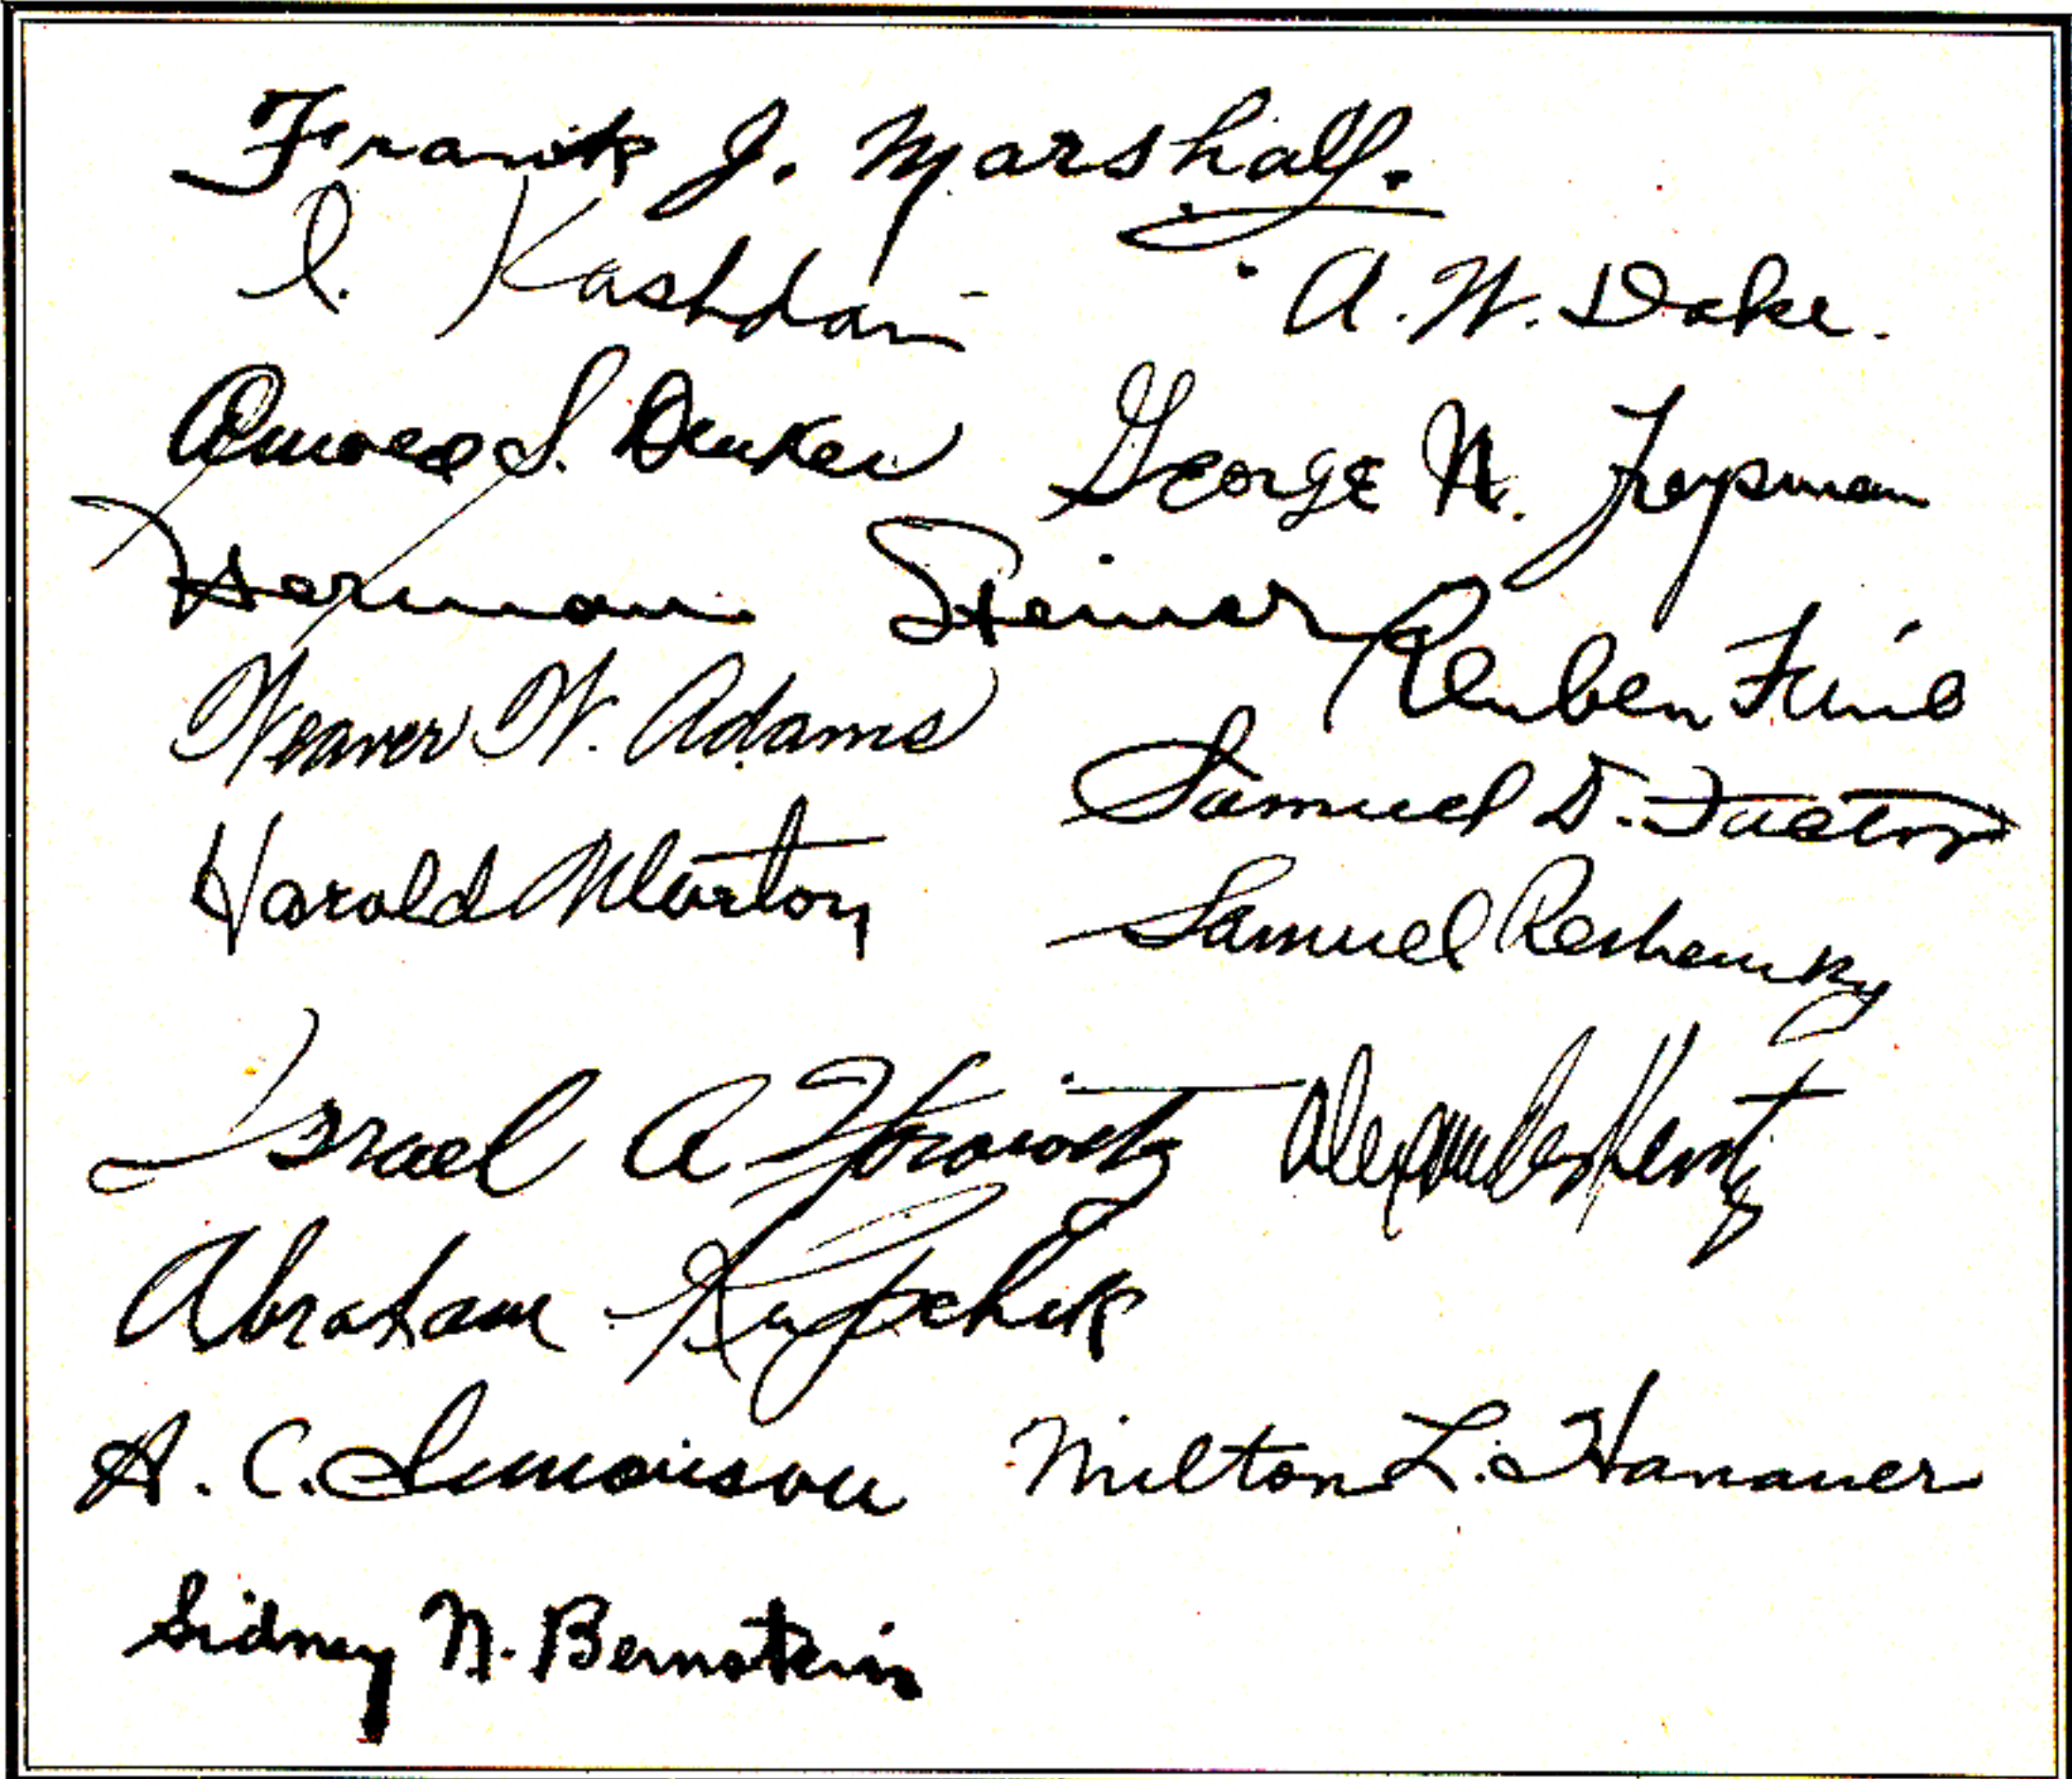 Frank J. Marshall.
I. Kashdan
A. W. Dake.
Arnold S. Denker
George N. Treysman
Herman Steiner
Reuben Fine
Weaver W. Adams
Samuel D. Factor
Harold Morton
Samuel Reshevsky
Israel A. Horowitz
Alexander Kevitz
Abraham Kupchik
A. C. Simonson
Milton L. Hanauer
Sidney N. Bernstein